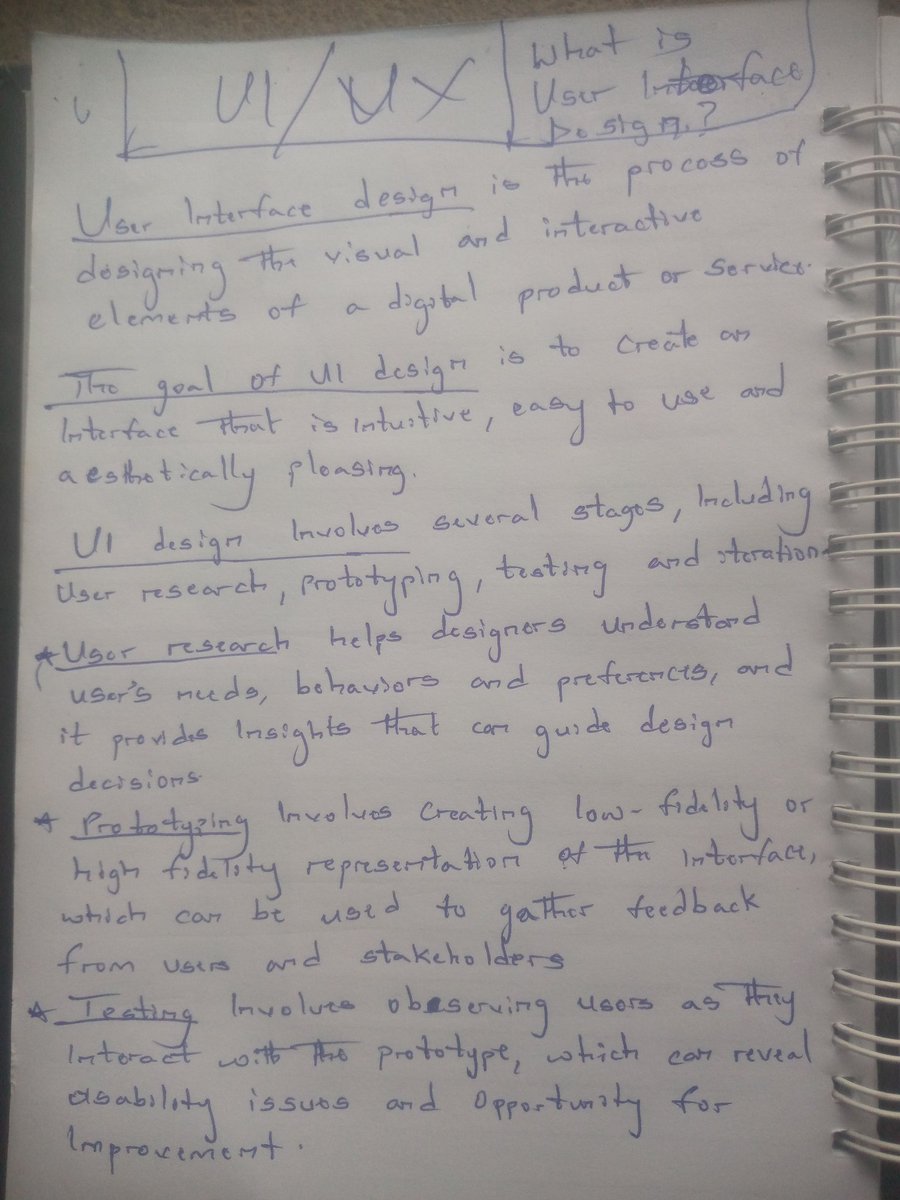 UI/UX
What is
User Interface
Design.?
User Interface design is the process of
designing the visual and interactive
elements of a digital product or service.
The goal of UI design is to create an
Interface that is intuitive, easy to use and
aesthetically pleasing.
UI design Involves several stages, Including
User research, prototyping, testing and iteration.
* User research helps designers understand
user's needs, behaviors and preferences, and
it provides Insights that can guide design
decisions.
* Prototyping Involves Creating low-fidelity or
high fidelity representation of the Interface,
which can be used to gather feedback
from users and stakeholders
* Testing Involves observing users as they
Interact with the prototype, which can reveal
usability issues and opportunity for
Improvement.